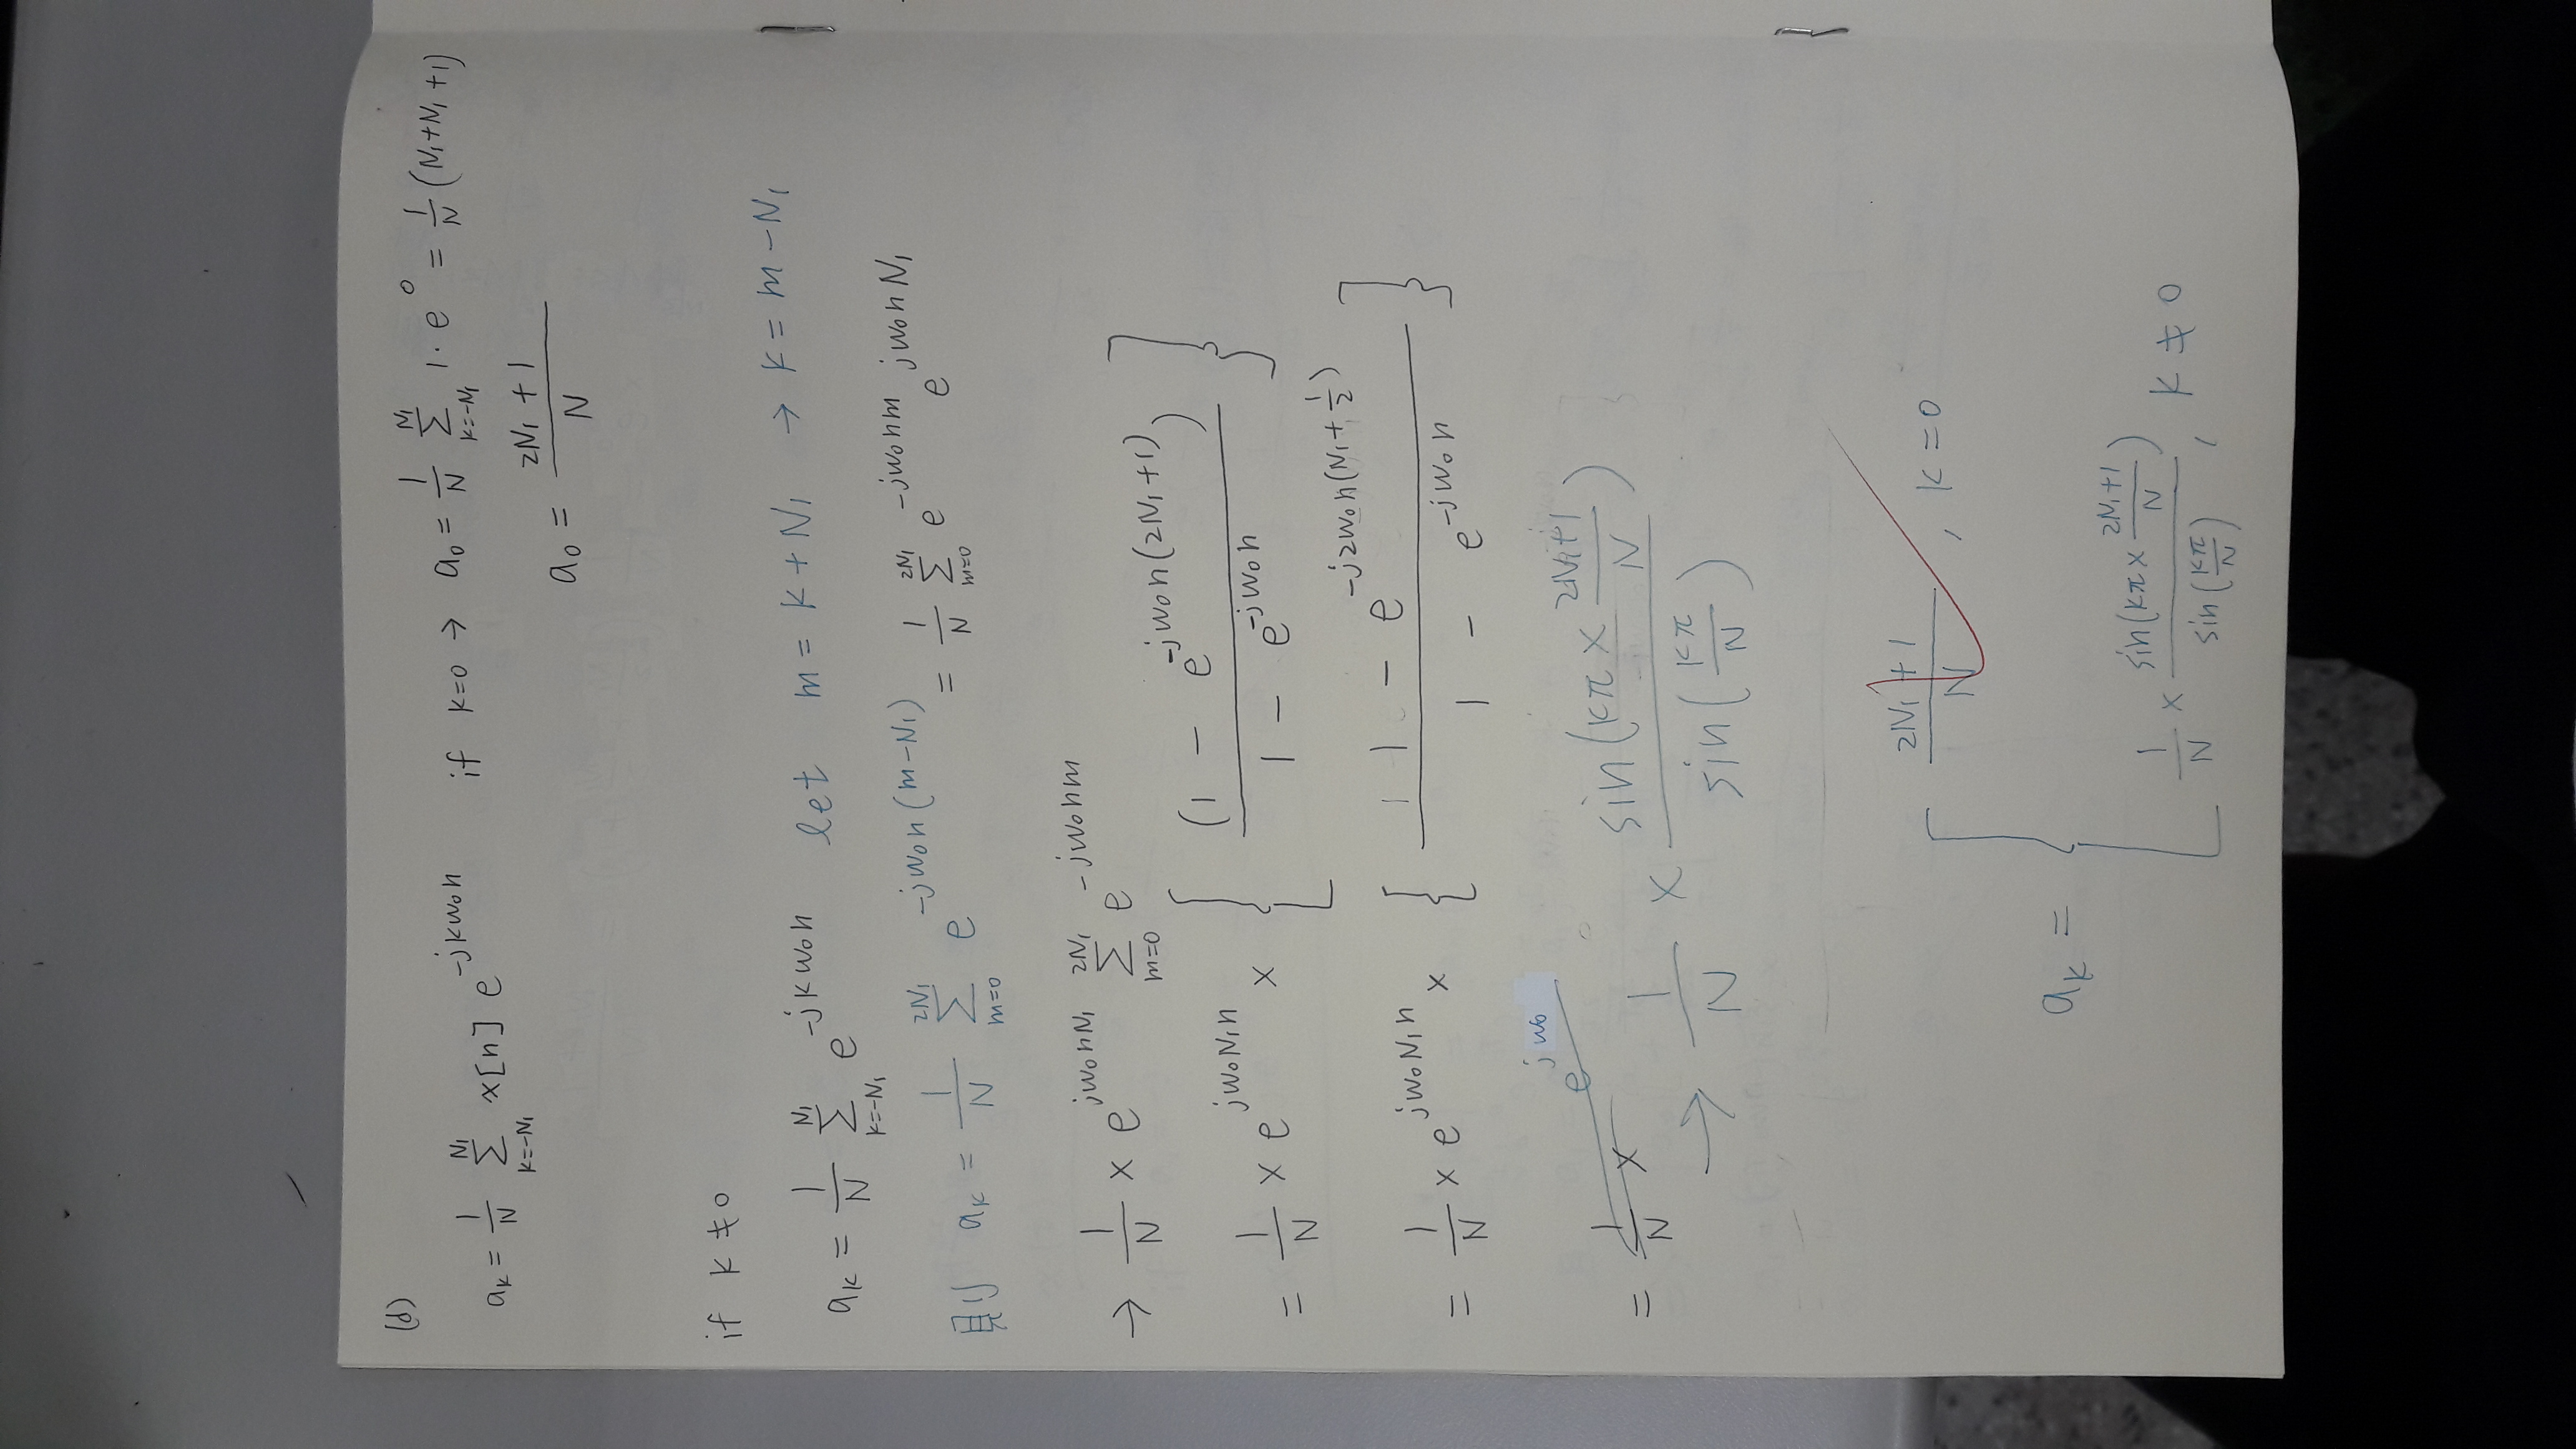 (d)
aₖ = 1/N Σ_{k=-N₁}^{N₁} x[n] e^{-jkω₀n} if k=0 → a₀ = 1/N Σ_{k=-N₁}^{N₁} 1·e⁰ = 1/N (N₁+N₁+1)
a₀ = (2N₁+1)/N
if k≠0
aₖ = 1/N Σ_{k=-N₁}^{N₁} e^{-jkω₀n} let m = k+N₁ → k = m-N₁
則 aₖ = 1/N Σ_{m=0}^{2N₁} e^{-jω₀n(m-N₁)} = 1/N Σ_{m=0}^{2N₁} e^{-jω₀nm} e^{jω₀nN₁}
→ 1/N × e^{jω₀nN₁} Σ_{m=0}^{2N₁} e^{-jω₀nm}
= 1/N × e^{jω₀N₁n} × { (1 - e^{-jω₀n(2N₁+1)}) / (1 - e^{-jω₀n}) }
= 1/N × e^{jω₀N₁n} × { (1 - e^{-j2ω₀n(N₁+1/2)}) / (1 - e^{-jω₀n}) }
= 1/N × e^{jω₀}
→ 1/N × sin(kπ × (2N₁+1)/N) / sin(kπ/N)
aₖ = { (2N₁+1)/N , k=0
1/N × sin(kπ × (2N₁+1)/N) / sin(kπ/N) , k≠0